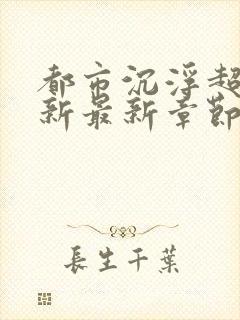 都市沉浮超
新最新章節
長生千葉